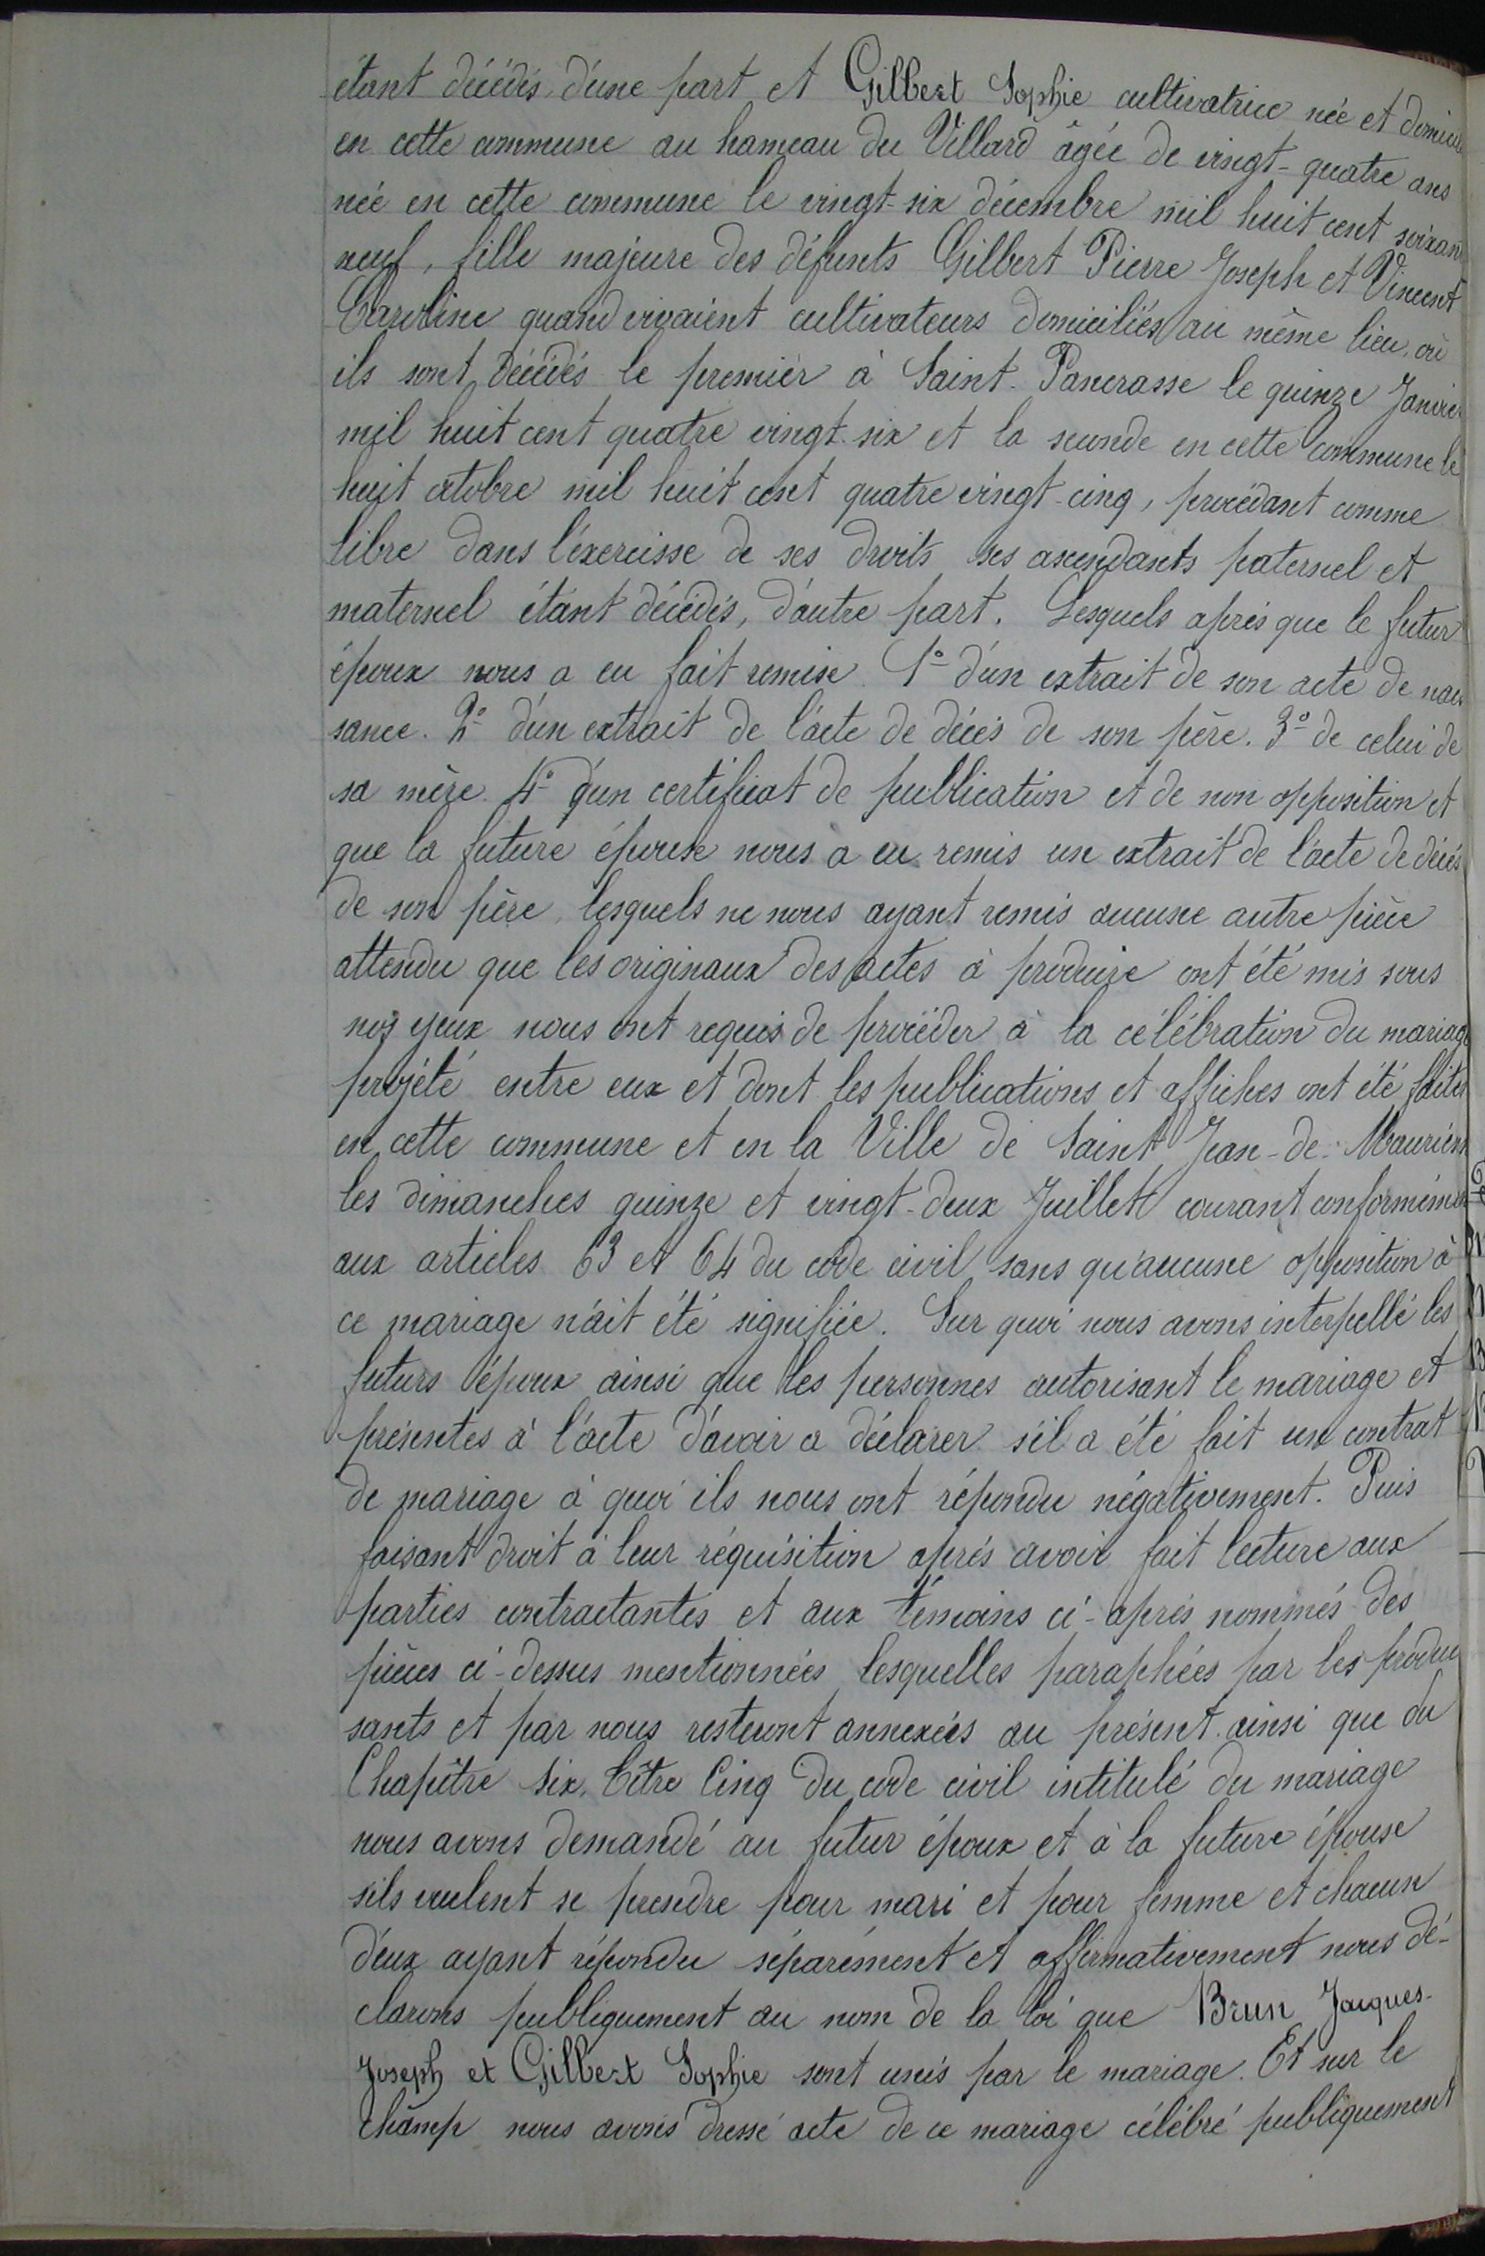 étant décédés, d'une part et Gilbert Sophie cultivatrice née et domici
en cette commune au hameau du Villard âgée de vingt-quatre ans
née en cette commune le vingt-six décembre mil huit cent soixan
neuf, fille majeure des défunts Gilbert Pierre Joseph et Vincent
Caroline quand vivaient cultivateurs domiciliés au même lieu, où
ils sont décédés le premier à Saint-Pancrasse le quinze Janvier
mil huit cent quatre vingt-six et la seconde en cette commune le
huit octobre mil huit cent quatre vingt-cinq, procédant comme
libre dans l'éxercisse de ses droits ses ascendants paternel et
maternel étant décédés, d'autre part. Lesquels après que le futur
époux nous a eu fait remise 1° d'un extrait de son acte de nais
sance. 2° d'un extrait de l'acte de décès de son père. 3° de celui de
sa mère. 4° d'un certificat de publication et de non opposition et
que la future épouse nous a eu remis un extrait de l'acte de décès
de son père, lesquels ne nous ayant remis aucune autre pièce
attendu que les originaux des actes à produire ont été mis sous
nos yeux nous ont requis de procéder à la célébration du mariage
projété entre eux et dont les publications et affiches ont été faites
en cette commune et en la Ville de Saint Jean-de-Maurienn
les dimanches quinze et vingt-deux Juillet courant conformémen
aux articles 63 et 64 du code civil sans qu'aucune opposition à
ce mariage n'ait été signifiée. Sur quoi nous avons interpellé les
futurs époux ainsi que les personnes autorisant le mariage et
présentes à l'acte d'avoir a déclarer s'il a été fait un contrat
de mariage à quoi ils nous ont répondu négativement. Puis
faisant droit à leur réquisition après avoir fait lecture aux
parties contractantes et aux témoins ci-après nommés des
pièces ci-dessus mentionnées lesquelles paraphées par les produi
sants et par nous resteront annexées au présent ainsi que du
Chapitre six, titre Cinq du code civil intitulé du mariage
nous avons demandé au futur époux et à la future épouse
s'ils veulent se prendre pour mari et pour femme et chacun
d'eux ayant répondu séparément et affirmativement nous dé-
clarons publiquement au nom de la loi que Brun Jacques-
Joseph et Gilbert Sophie sont unis par le mariage. Et sur le
champ nous avons dressé acte de ce mariage célébré publiquement